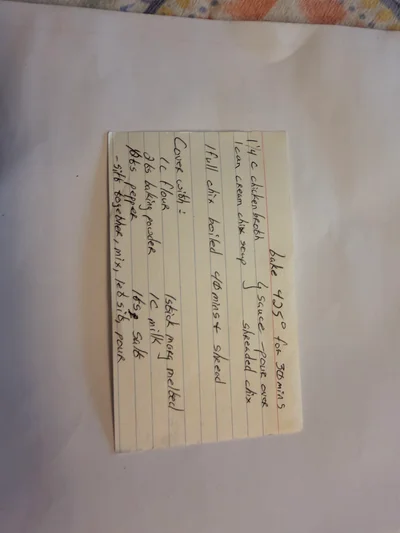 bake 425° for 30mins
1 1/4 c chicken broth } sauce - pour over
1 can cream chix soup shreaded chix
1 full chix boiled 40mins + shread
Cover with:
1c flour 1 stick marg melted
2ts baking powder 1c milk
ts pepper 1ts salt
- sift together, mix, let sit, pour